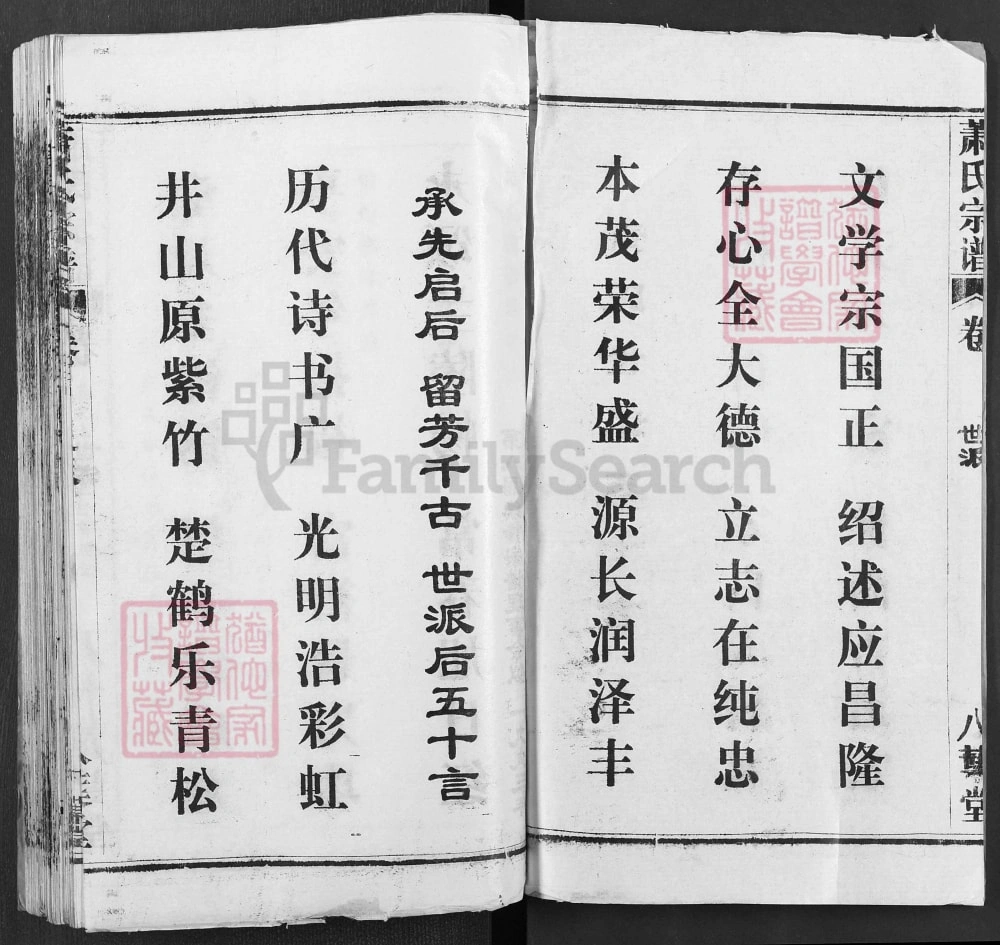 萧氏宗谱
卷
世派
八叶堂
文学宗国正 绍述应昌隆
存心全大德 立志在纯忠
本茂荣华盛 源长润泽丰
承先启后 留芳千古 世派后五十言
历代诗书广 光明浩彩虹
井山原紫竹 楚鹤乐青松
FamilySearch
譜學會
收藏